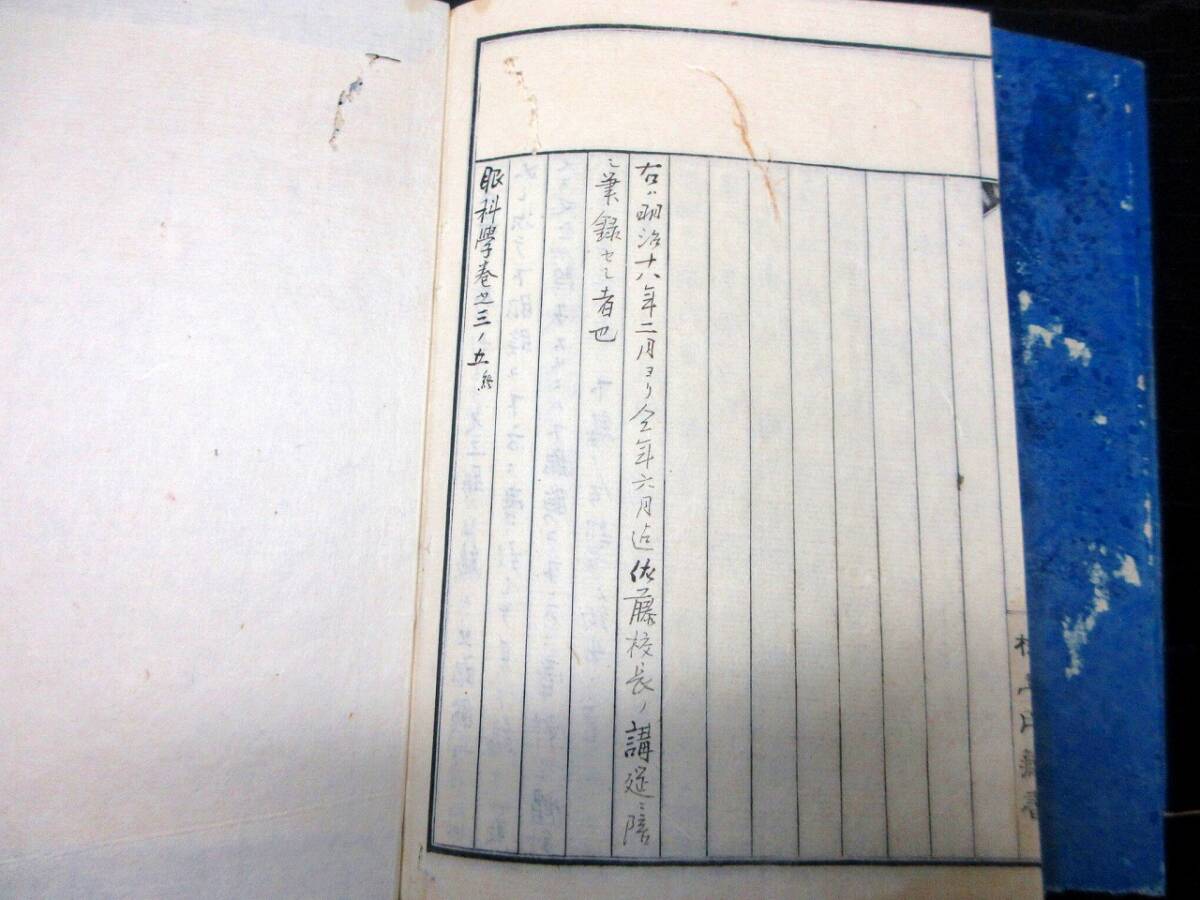 右ハ明治十八年二月ヨリ仝年六月迠佐藤校長ノ講莚ニ陪
シ筆録セシ者也
眼科學卷之三ノ五終